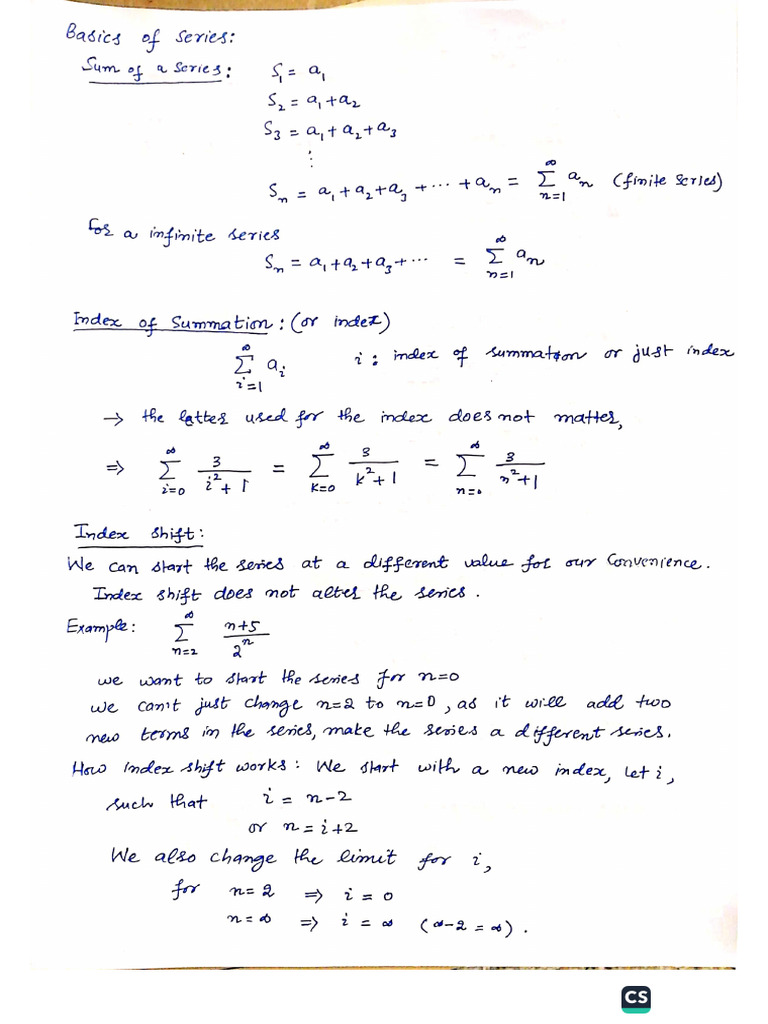 Basics of series:
Sum of a series: S₁ = a₁
S₂ = a₁ + a₂
S₃ = a₁ + a₂ + a₃
⋮
Sₙ = a₁ + a₂ + a₃ + ⋯ + aₙ = ∑_{n=1}^{∞} aₙ (finite series)
for a infinite series
Sₙ = a₁ + a₂ + a₃ + ⋯ = ∑_{n=1}^{∞} aₙ
Index of Summation : (or index)
∑_{i=1}^{∞} aᵢ i : index of summation or just index
→ the letter used for the index does not matter,
⇒ ∑_{i=0}^{∞} 3/(i²+1) = ∑_{k=0}^{∞} 3/(k²+1) = ∑_{n=0}^{∞} 3/(n²+1)
Index shift:
We can start the series at a different value for our convenience.
Index shift does not alter the series.
Example: ∑_{n=2}^{∞} (n+5)/2ⁿ
we want to start the series for n=0
we can't just change n=2 to n=0, as it will add two
new terms in the series, make the series a different series.
How index shift works: We start with a new index, let i,
such that i = n-2
or n = i+2
We also change the limit for i,
for n=2 ⇒ i = 0
n = ∞ ⇒ i = ∞ (∞-2 = ∞).
CS